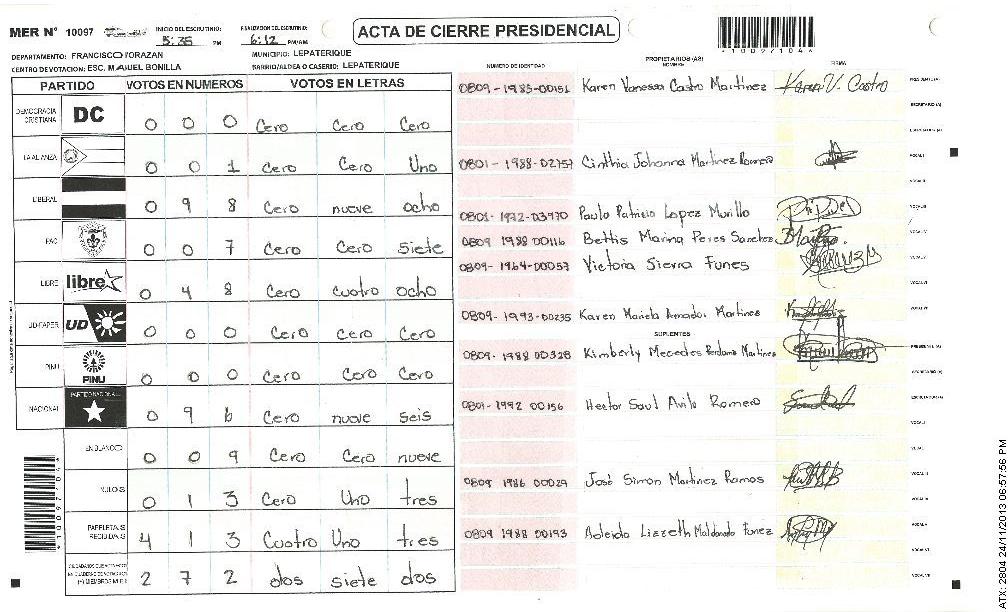 MER N° 10097
INICIO DEL ESCRUTINIO: 5:35 PM
FINALIZACION DEL ESCRUTINIO: 6:12 PM/AM
ACTA DE CIERRE PRESIDENCIAL
*10097104*
DEPARTAMENTO: FRANCISCO MORAZAN
MUNICIPIO: LEPATERIQUE
CENTRO DE VOTACION: ESC. MANUEL BONILLA
BARRIO/ALDEA O CASERIO: LEPATERIQUE
PARTIDO VOTOS EN NUMEROS VOTOS EN LETRAS
DEMOCRACIA CRISTIANA DC 0 0 0 Cero Cero Cero
LA ALIANZA 0 0 1 Cero Cero Uno
LIBERAL 0 9 8 Cero nueve ocho
PAC 0 0 7 Cero Cero siete
LIBRE libre 0 4 8 Cero cuatro ocho
UD-FAPER UD 0 0 0 Cero Cero Cero
PINU PINU 0 0 0 Cero Cero Cero
NACIONAL PARTIDO NACIONAL 0 9 6 Cero nueve seis
EN BLANCO 0 0 9 Cero Cero nueve
NULOS 0 1 3 Cero Uno tres
PAPELETAS RECIBIDAS 4 1 3 Cuatro Uno tres
2 7 2 dos siete dos
*10097104*
NUMERO DE IDENTIDAD
PROPIETARIOS (AS)
NOMBRE
FIRMA
0809-1985-00151 Karen Vanessa Castro Martinez Karen V. Castro PRESIDENTE (A)
SECRETARIO (A)
ESCRUTADOR (A)
0801-1988-02757 Cinthia Johanna Martinez Romero VOCAL I
VOCAL II
0801-1972-03970 Paulo Patricio Lopez Murillo VOCAL III
0809 1988 00116 Bettis Marina Peres Sanchez VOCAL IV
0809-1964-00057 Victoria Sierra Funes VOCAL V
VOCAL VI
0809-1993-00235 Karen Mariela Amador Martines VOCAL VII
SUPLENTES
0809-1988 00328 Kimberly Mecedes Perdomo Martines PRESIDENTE (A)
SECRETARIO (A)
0801-1992 00156 Hector Saul Avila Romero ESCRUTADOR (A)
VOCAL I
VOCAL II
0809 1986 00029 José Simon Martinez Ramos VOCAL III
VOCAL IV
0809 1988 00193 Adleida Lizzeth Maldonado Funez VOCAL V
VOCAL VI
VOCAL VII
ATX: 2804 24/11/2013 06:57:56 PM